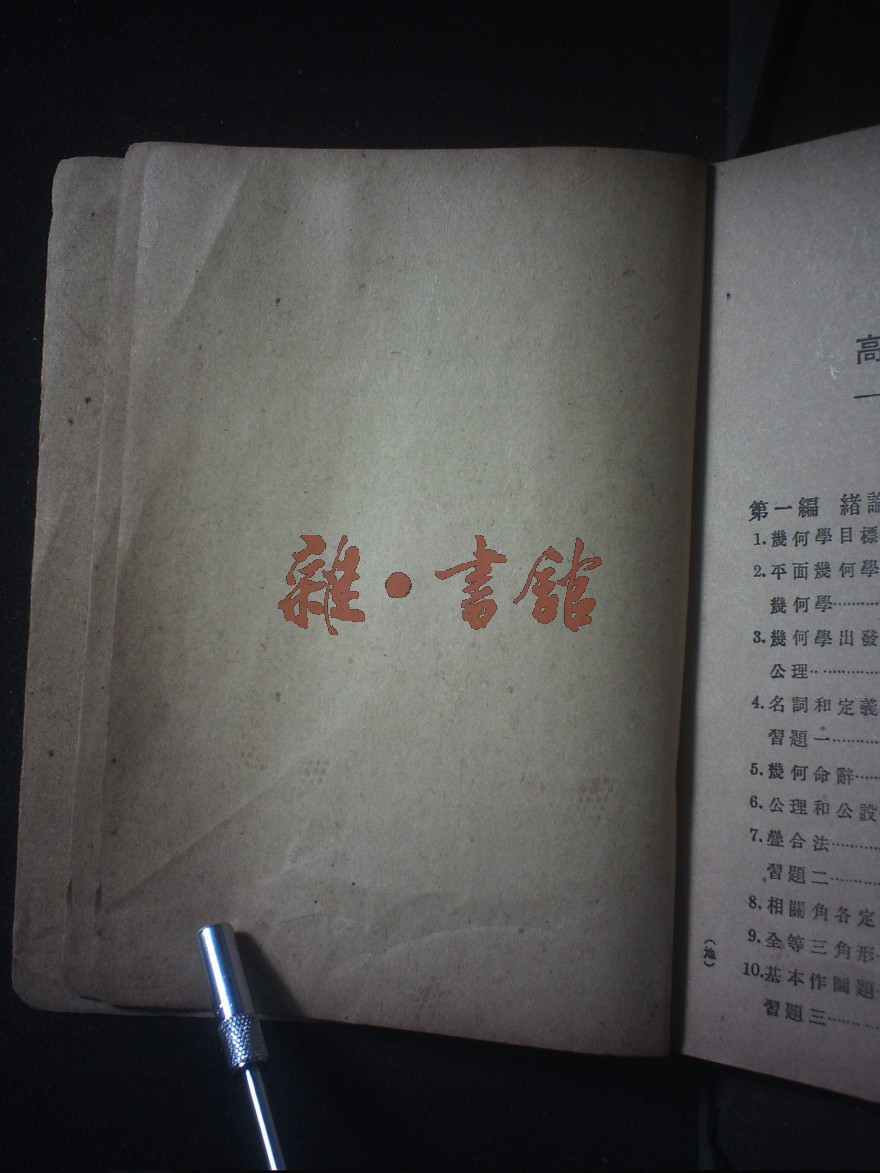 雜·書館
高
一
第一編 緒論
1.幾何學目標
2.平面幾何學
幾何學………
3.幾何學出發
公理………
4.名詞和定義
習題一………
5.幾何命辭……
6.公理和公設
7.疊合法………
習題二………
8.相關角各定
9.全等三角形…
10.基本作圖題…
習題三………
(地)